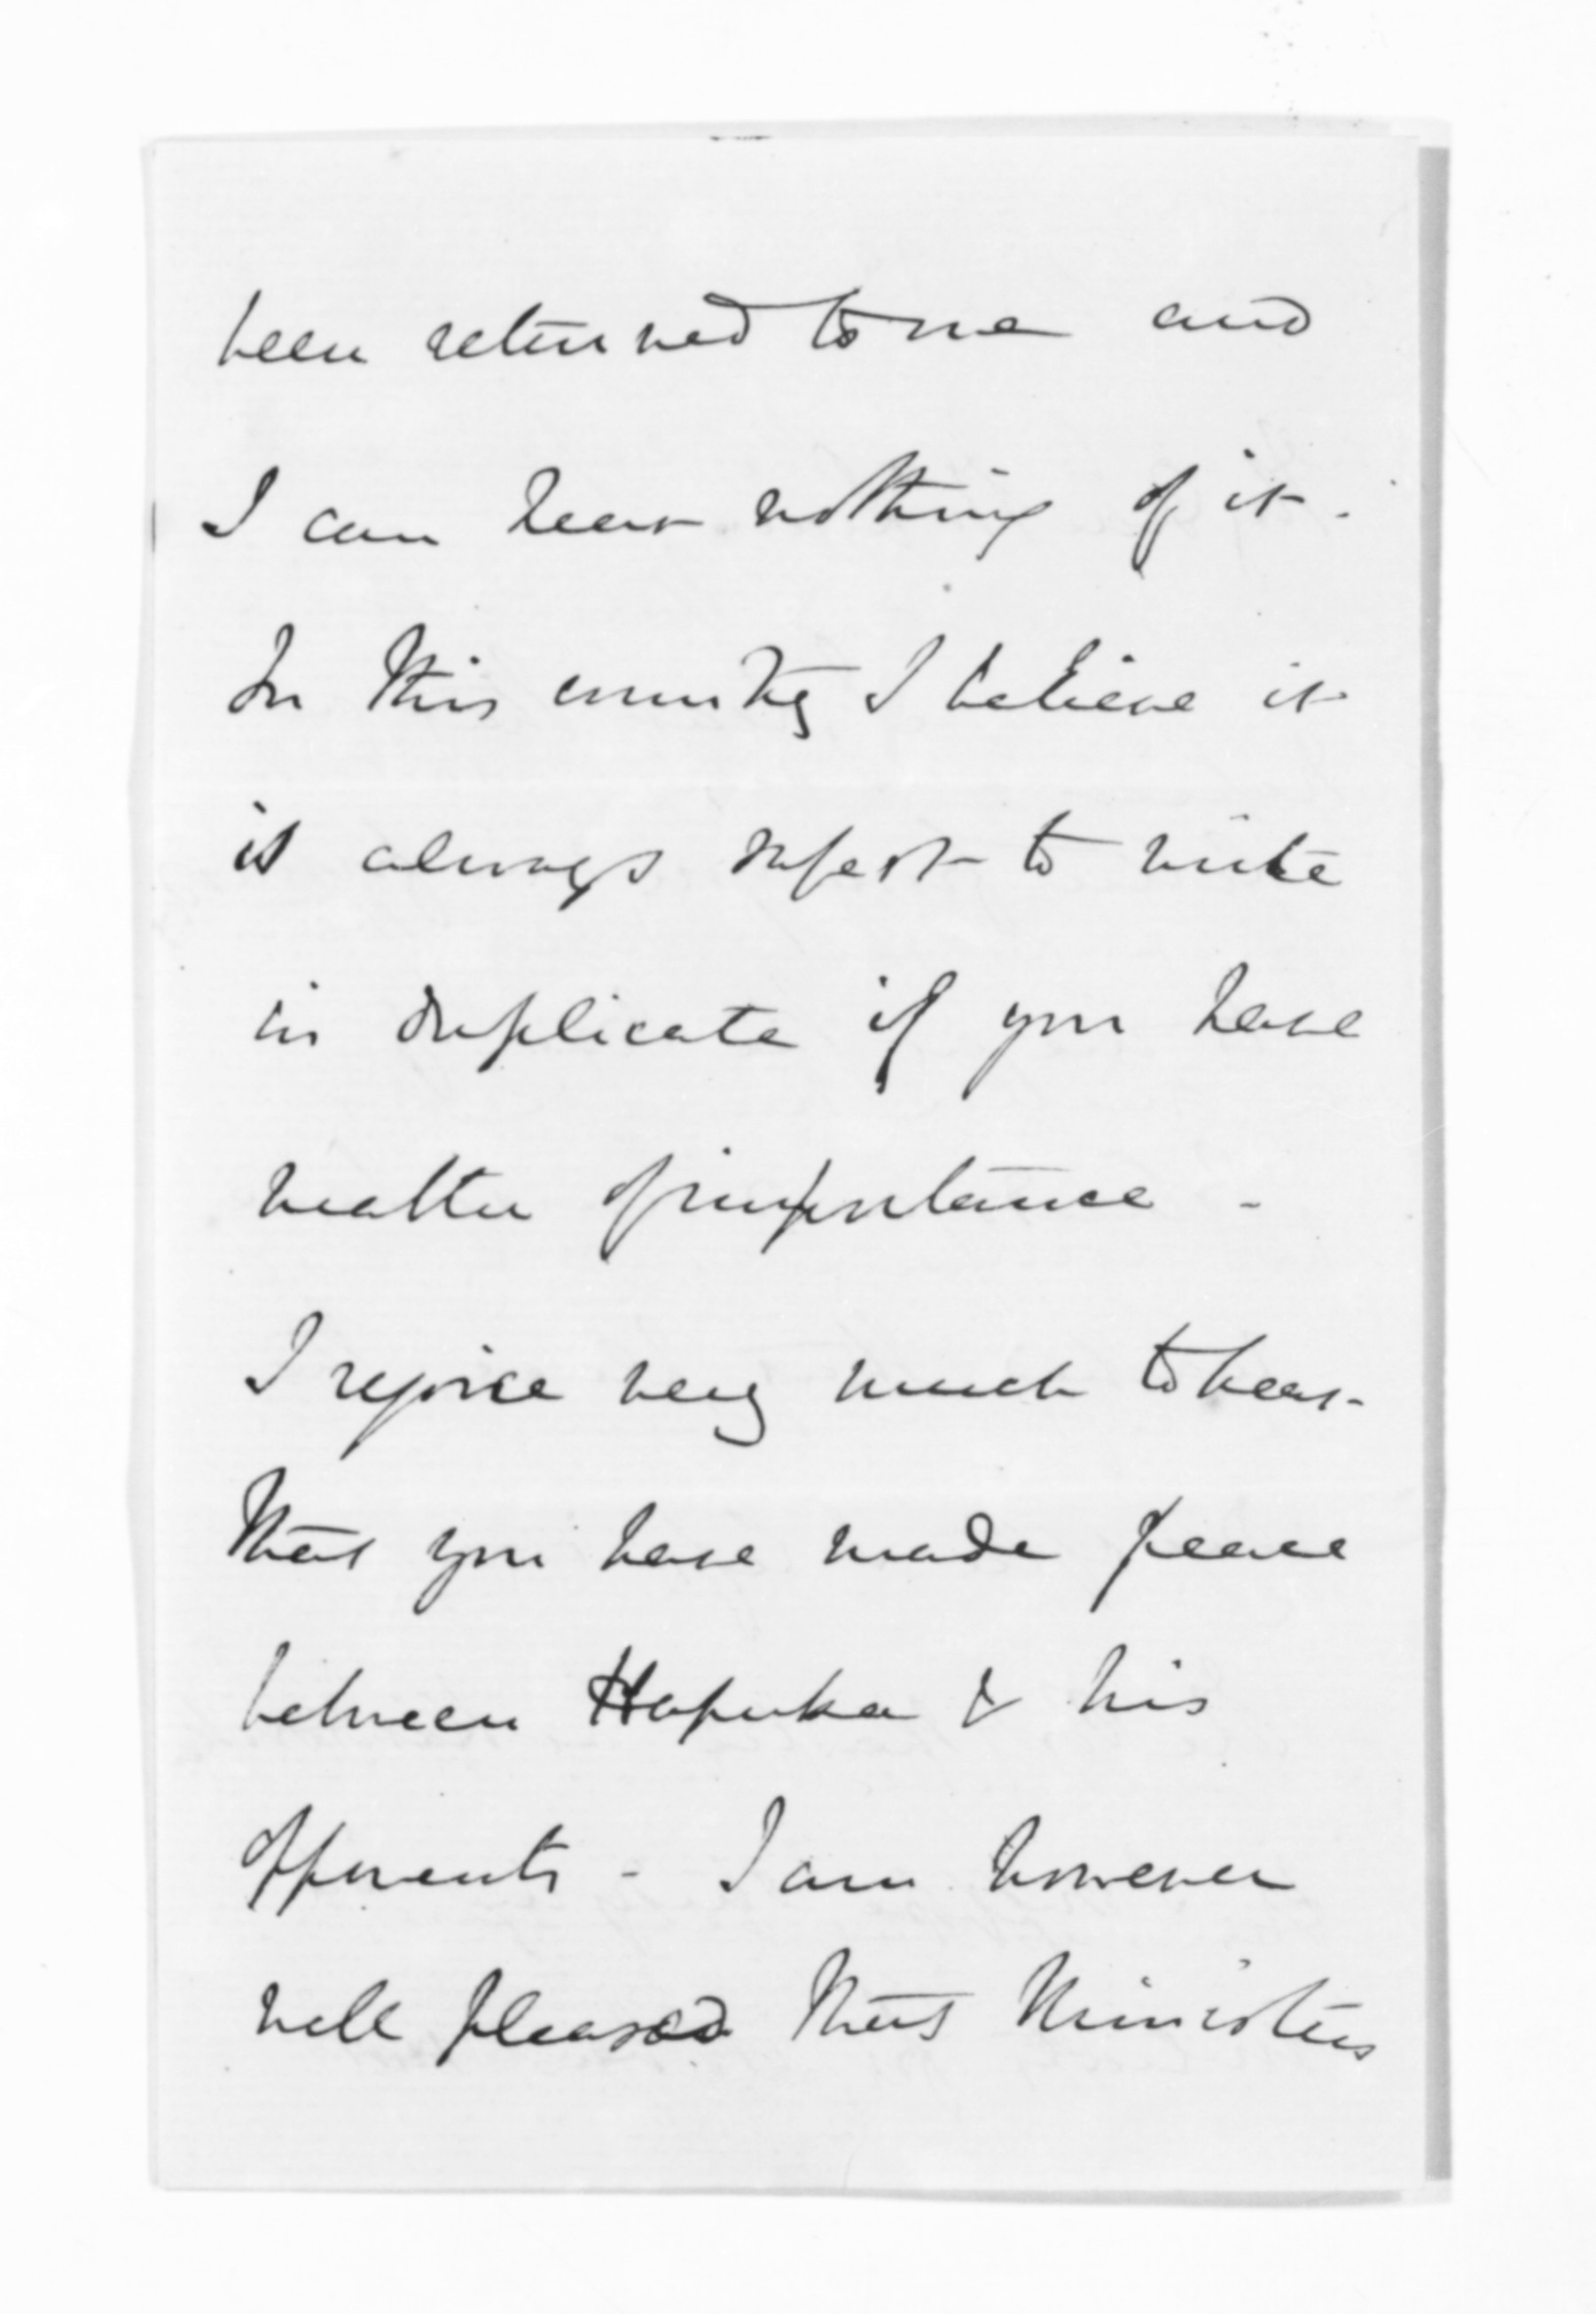 been returned to me and
I can hear nothing of it.
In this country I believe it
is always safest to write
in duplicate if you have
matter of importance -
I rejoice very much to hear
that you have made peace
between Hapuka & his
opponents - I am however
well pleased that Ministers